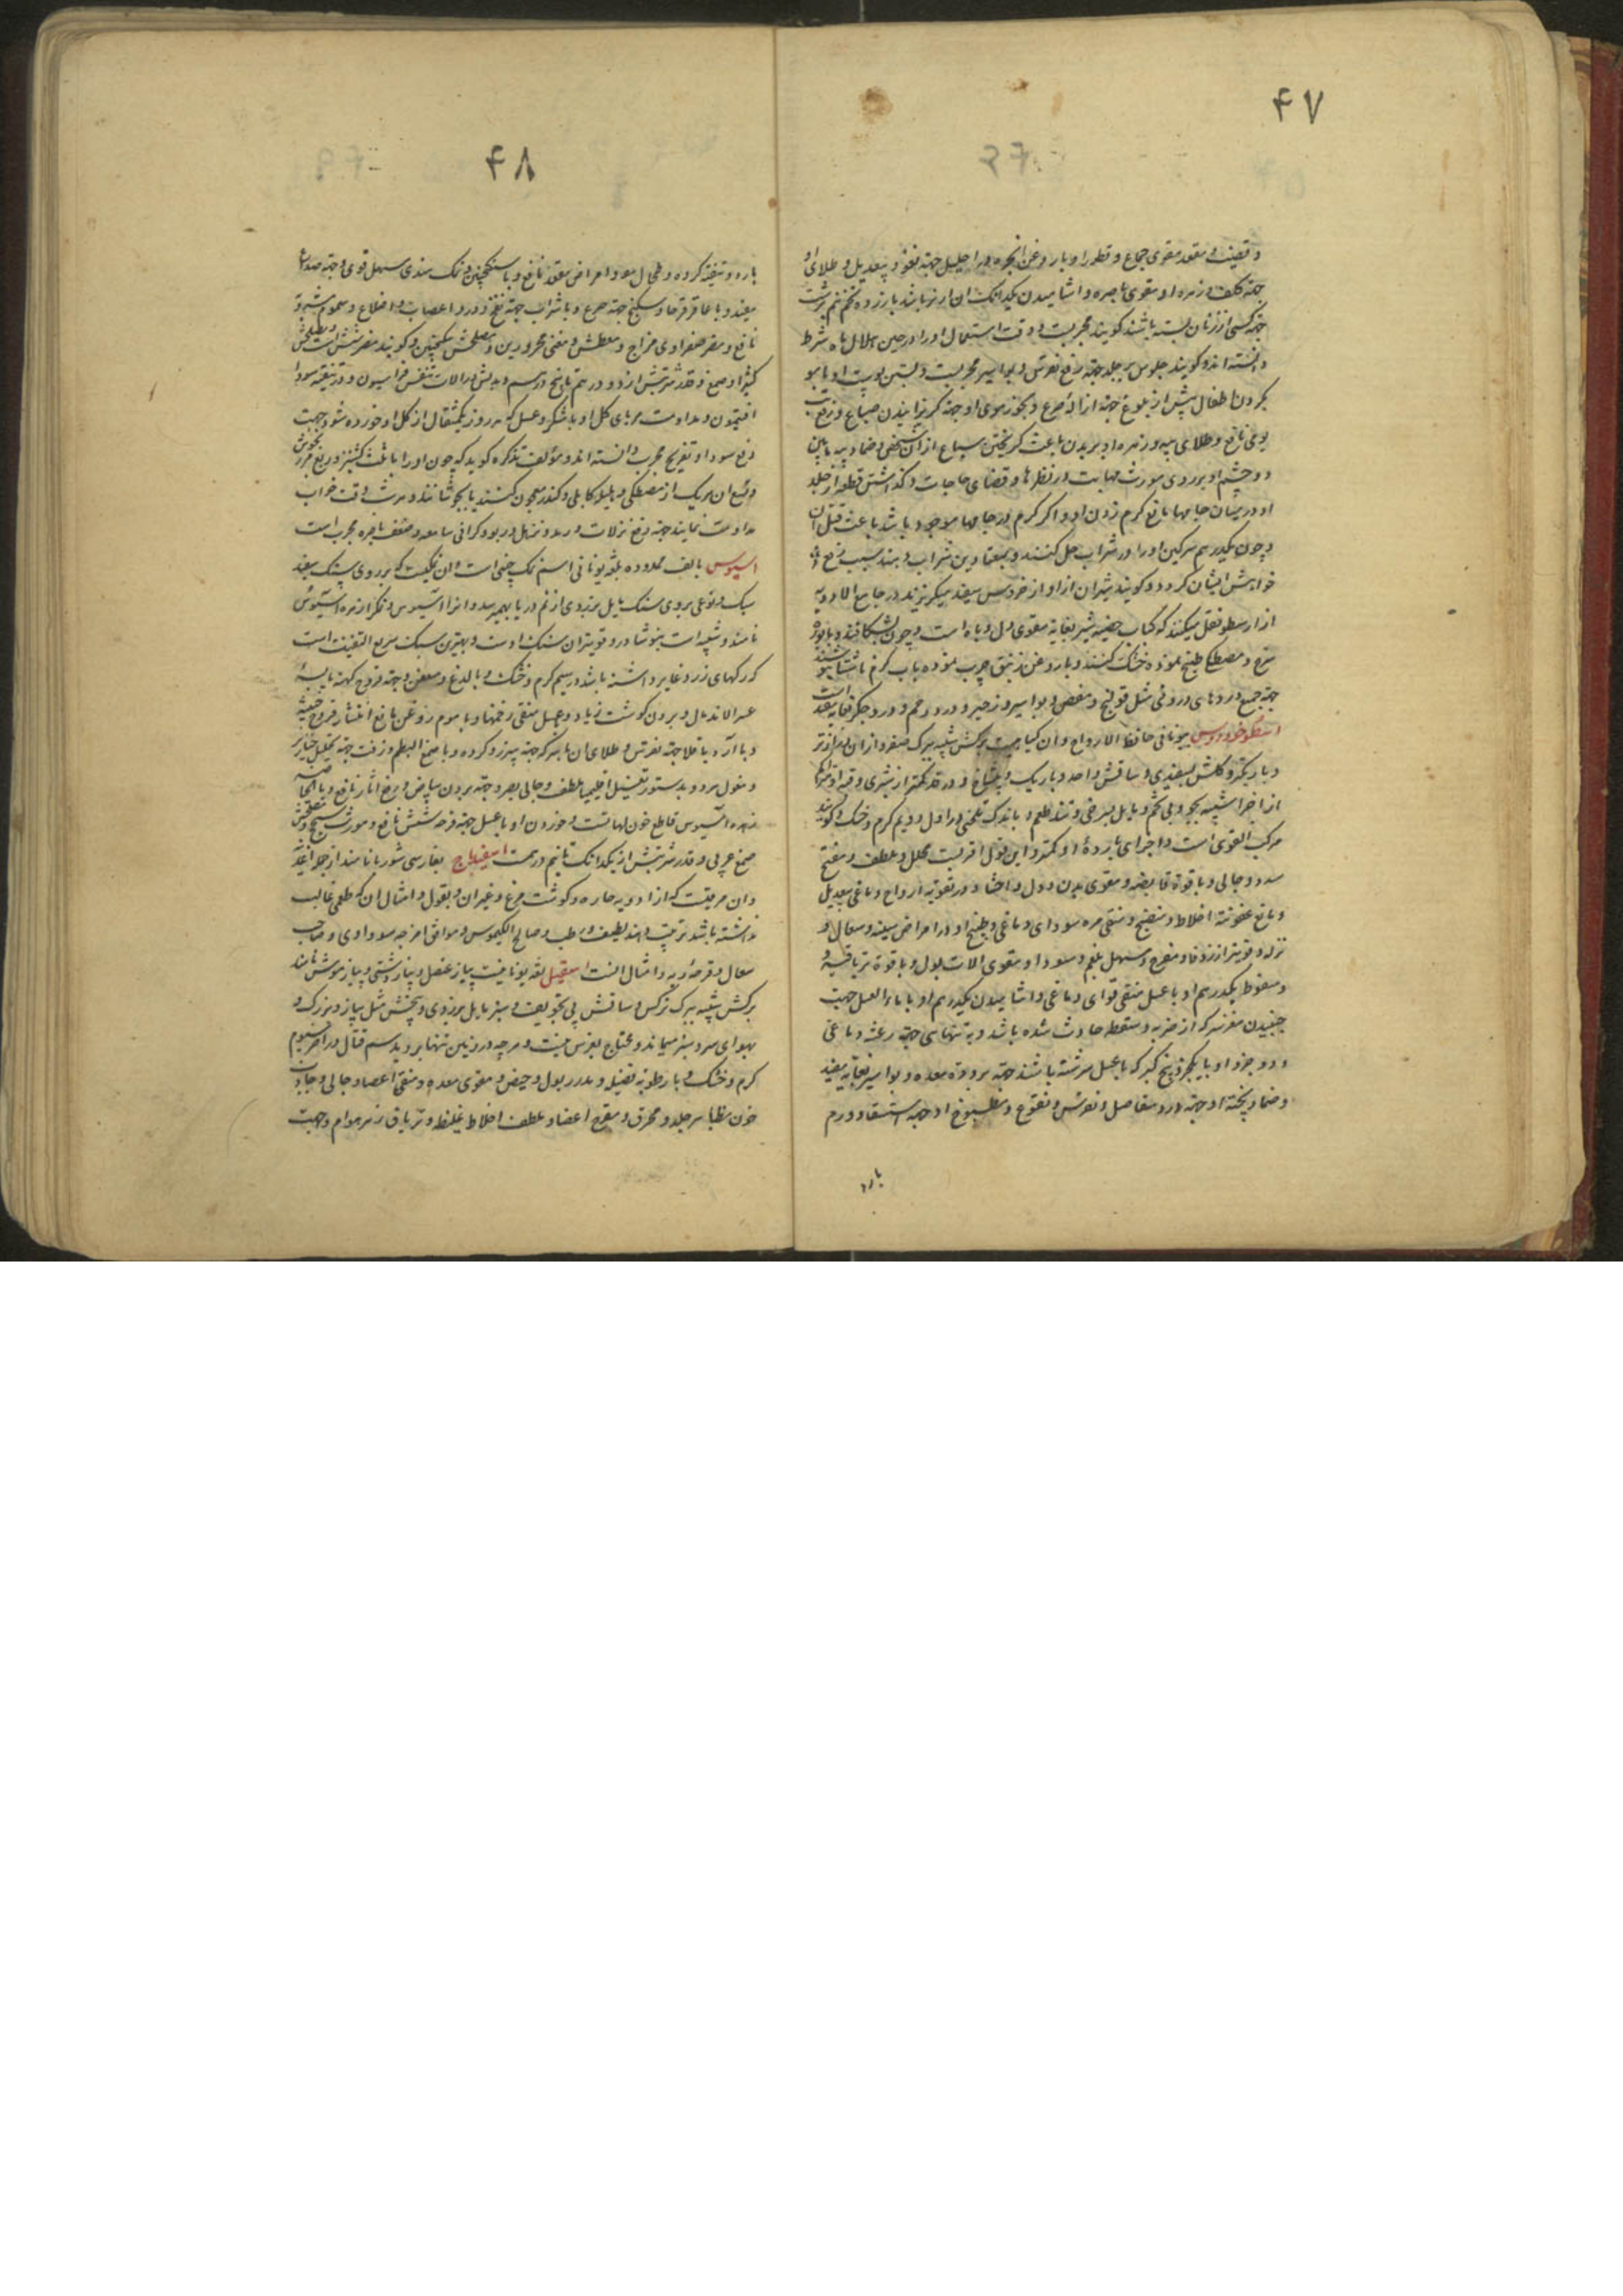 ۴۷
جماع و قطور او با روغن
جهة کلف و زهره او مقوی باصره و اشامیدن یکدانک ان
جهة کسی از زنان بسته باشند کویند مجربست و وقت استعمال او را در حین هلال ماه شرط
دانسته اند و کویند جلوس بر جلد جهة رفع نقرس و بواسیر مجربست و بستن پوست او با مو
بکردن اطفال پیش از بلوغ جهة ازاله صرع و بخور موی او جهة کریزانیدن سباع و رفع تب
یومی نافع و طلای پیه و زهره او بر بدن باعث کریختن سباع از آن شخص و ضماد پیه مابین
دو چشم او بر روی مورث مهابت در نظرها و قضای حاجات و کذاشتن قطعه از جلد
او در میان جامها مانع کرم زدن او و اکر کرم در جامها موجود باشد باعث قتل ان
و چون یکدرهم سرکین او را در شراب حل کنند و بمعتادین شراب دهند سبب رفع
خواهش ایشان کردد و کویند شیران از اواز خروس سفید میکریزند در جامع الادویه
از ارسطو نقل میکند که کباب خصیه شیر بغایة مقوی دل و باه است و چون بشکافند و با بوره
سرخ و مصطکی طبخ نموده خشک کنند و با روغن زنبق چرب نموده با آب کرم ناشتا بنوشند
جهة جمیع دردهای درونی مثل قولنج و مغص و بواسیر و زحیر و درد رحم و درد جکر بغایة مفید است
اسطوخودوس بیونانی حافظ الارواح و ان کیاهیست برکش شبیه ببرک صعتر و از ان درازتر
و باریکتر و کلش بسفیدی و ساقش واحد و باریک و
از اجزا شبیه بجو و بی تخم و مایل بسرخی و تند طعم و با اندک تلخی در اول و دویم کرم و خشک و کویند
مرکب القوی است و اجزای بارده او کمتر و این قول اقربست محلل و ملطف و مفتح
سدد و جالی و با قوة قابضه و مقوی بدن و دل و احشا و در تقویة ارواح دماغی بیعدیل
و مانع عفونت اخلاط و منضج و منقی مره سودای دماغی و طبیخ او در امراض سینه و سعال و
نزله قویتر از زوفا و مفرح و مسهل بلغم و سودا و مقوی الات بول و با قوة تریاقیه و
و سعوط یکدرهم او با عسل منقی قوای دماغی و اشامیدن یکدرهم او با ماء العسل جهت
جنبیدن مغز سر که از ضربه و سقطه حادث شده باشد و به تنهایی جهة رعشه دماغی
و دو جزو او با یکجزو بیخ کبر که با عسل سرشته باشند جهة برودة معده و بواسیر بغایة مفید
و ضماد پخته او جهة درد مفاصل و نقرس و نقوع و مطبوخ او جهة استسقاء و ورم
بارد
۴۸
بارد و تنقیه کرده و طحال و معده و امراض مقعد نافع و با سکنجبین و نمک هندی مسهل قوی و جهة صداع
مفید و با عاقرقرحا و سکبینج جهة صرع و با شراب جهة نفخ و درد اعصاب و اضلاع و سموم مشروبه
نافع و مضر صفراوی مزاج و معطش و مغثی محرورین و مصلحش سکنجبین و کویند مضر شش است و مصلحش
کتیرا و صمغ و قدر شربتش از دو درهم تا پنج درهم و بدلش در الات تنفس فراسیون و در تنقیه سودا
افتیمون و مداومت مربای کل او با شکر و عسل که هر روز یکمثقال از کل او خورده شود جهت
دفع سودا و تفریح مجرب دانسته اند و مؤلف تذکره کوید که چون او را با ثلث کشنیز و
و ربع ان هریک از مصطکی و هلیله کابلی و کندر معجون کنند یا بجوشانند و هر شب وقت خواب
مداومت نمایند جهة دفع نزلات و رمد و ربو و کرانی سامعه و ضعف باصره مجرب است
اسیوس بالف ممدوده بلغة یونانی اسم نمک چینی است و ان نمکیست که بر روی سنک سفید
سبک و نوعی بر روی سنک مایل بزردی از نم دریا بهم میرسد و انرا اسیوس و نمک از نهر اسیوس
نامند و شبیه است بنوشادر و قویتر ان سنک اوست و بهترین سبک سریع التفتت است
که رکهای زرد غایر داشته باشد در سیم کرم و خشک و با لذع و معفن و جهة قروح کهنه یا بسه
عسر الاندمال و بردن کوشت زیاد و با عسل منقی زخمها و با موم روغن مانع انتشار قروح خبیثه
و با آرد باقلا جهة نقرس و طلای ان با سرکه جهة سپرز و کرده و با صمغ البطم و زفت جهة تحلیل خنازیر
و بدستور تغسیل اقلیمیا ملطف و جالی بصر و جهة بردن بیاض و رفع اثار نافع و با
زهره اسیوس قاطع خون لهاتست و خوردن او با عسل جهة قرحه شش نافع و مورث سحج و مصلحش
صمغ عربی و قدر شربتش از یکدانک تا نیم درهمست اسفیدباج بفارسی شوربا نامند از جمله اغذیه
و ان مرقیست که از ادویه حاره و کوشت مرغ و غیر ان و بقول و امثال ان که طعمی غالب
نداشته باشد ترتیب دهند لطیف و رطب و صالح الکیموس و موافق امزجه سوداوی و صاحب
سعال و قرحه ریه و امثال انست اسقیل لغة یونانیست پیاز عنصل و پیاز دشتی و پیاز موش نامند
برکش شبیه ببرک نرکس و ساقش بی تجویف و سبز مایل بزردی و بیخش مثل پیاز و بزرک و
بهوای سرد سبز میماند و محتاج بغرس نیست و هرچه در زمین تنها بروید سم قتال و در اخر سیوم
کرم و خشک و با رطوبة فضیله و مدر بول و حیض و مقوی معده و منقی اعضا و جالی و جاذب
خون بظاهر جلد و محرق و مقرح اعضا و ملطف اخلاط غلیظه و تریاق زهر هوام و جهت